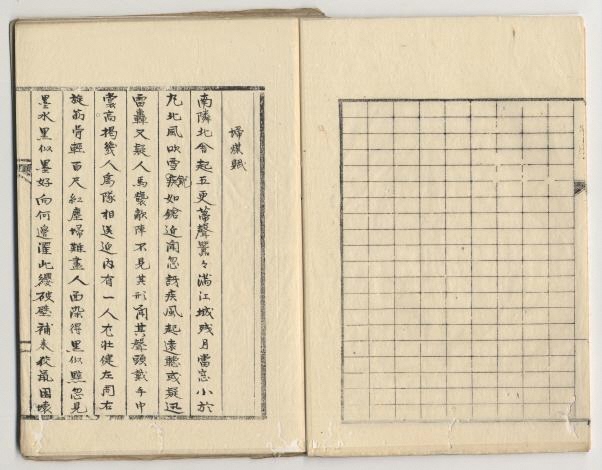 掃煤賦
南隣北舎起五更箒聲囂々滿江城殘月當窓小於
丸北風吹雪疾如鎗近聞忽訝疾風起遠聽或疑迅
雷轟又疑人馬襲敵陣不見其形聞其聲頭戴手巾
裳高揭幾人為隊相送迎內有一人尤壯健左周右
旋筋骨輕百尺紅塵掃難盡人面染得黑似黥忽見
墨水黑似墨好向何邊濯此纓破壁補來狡鼠困壞